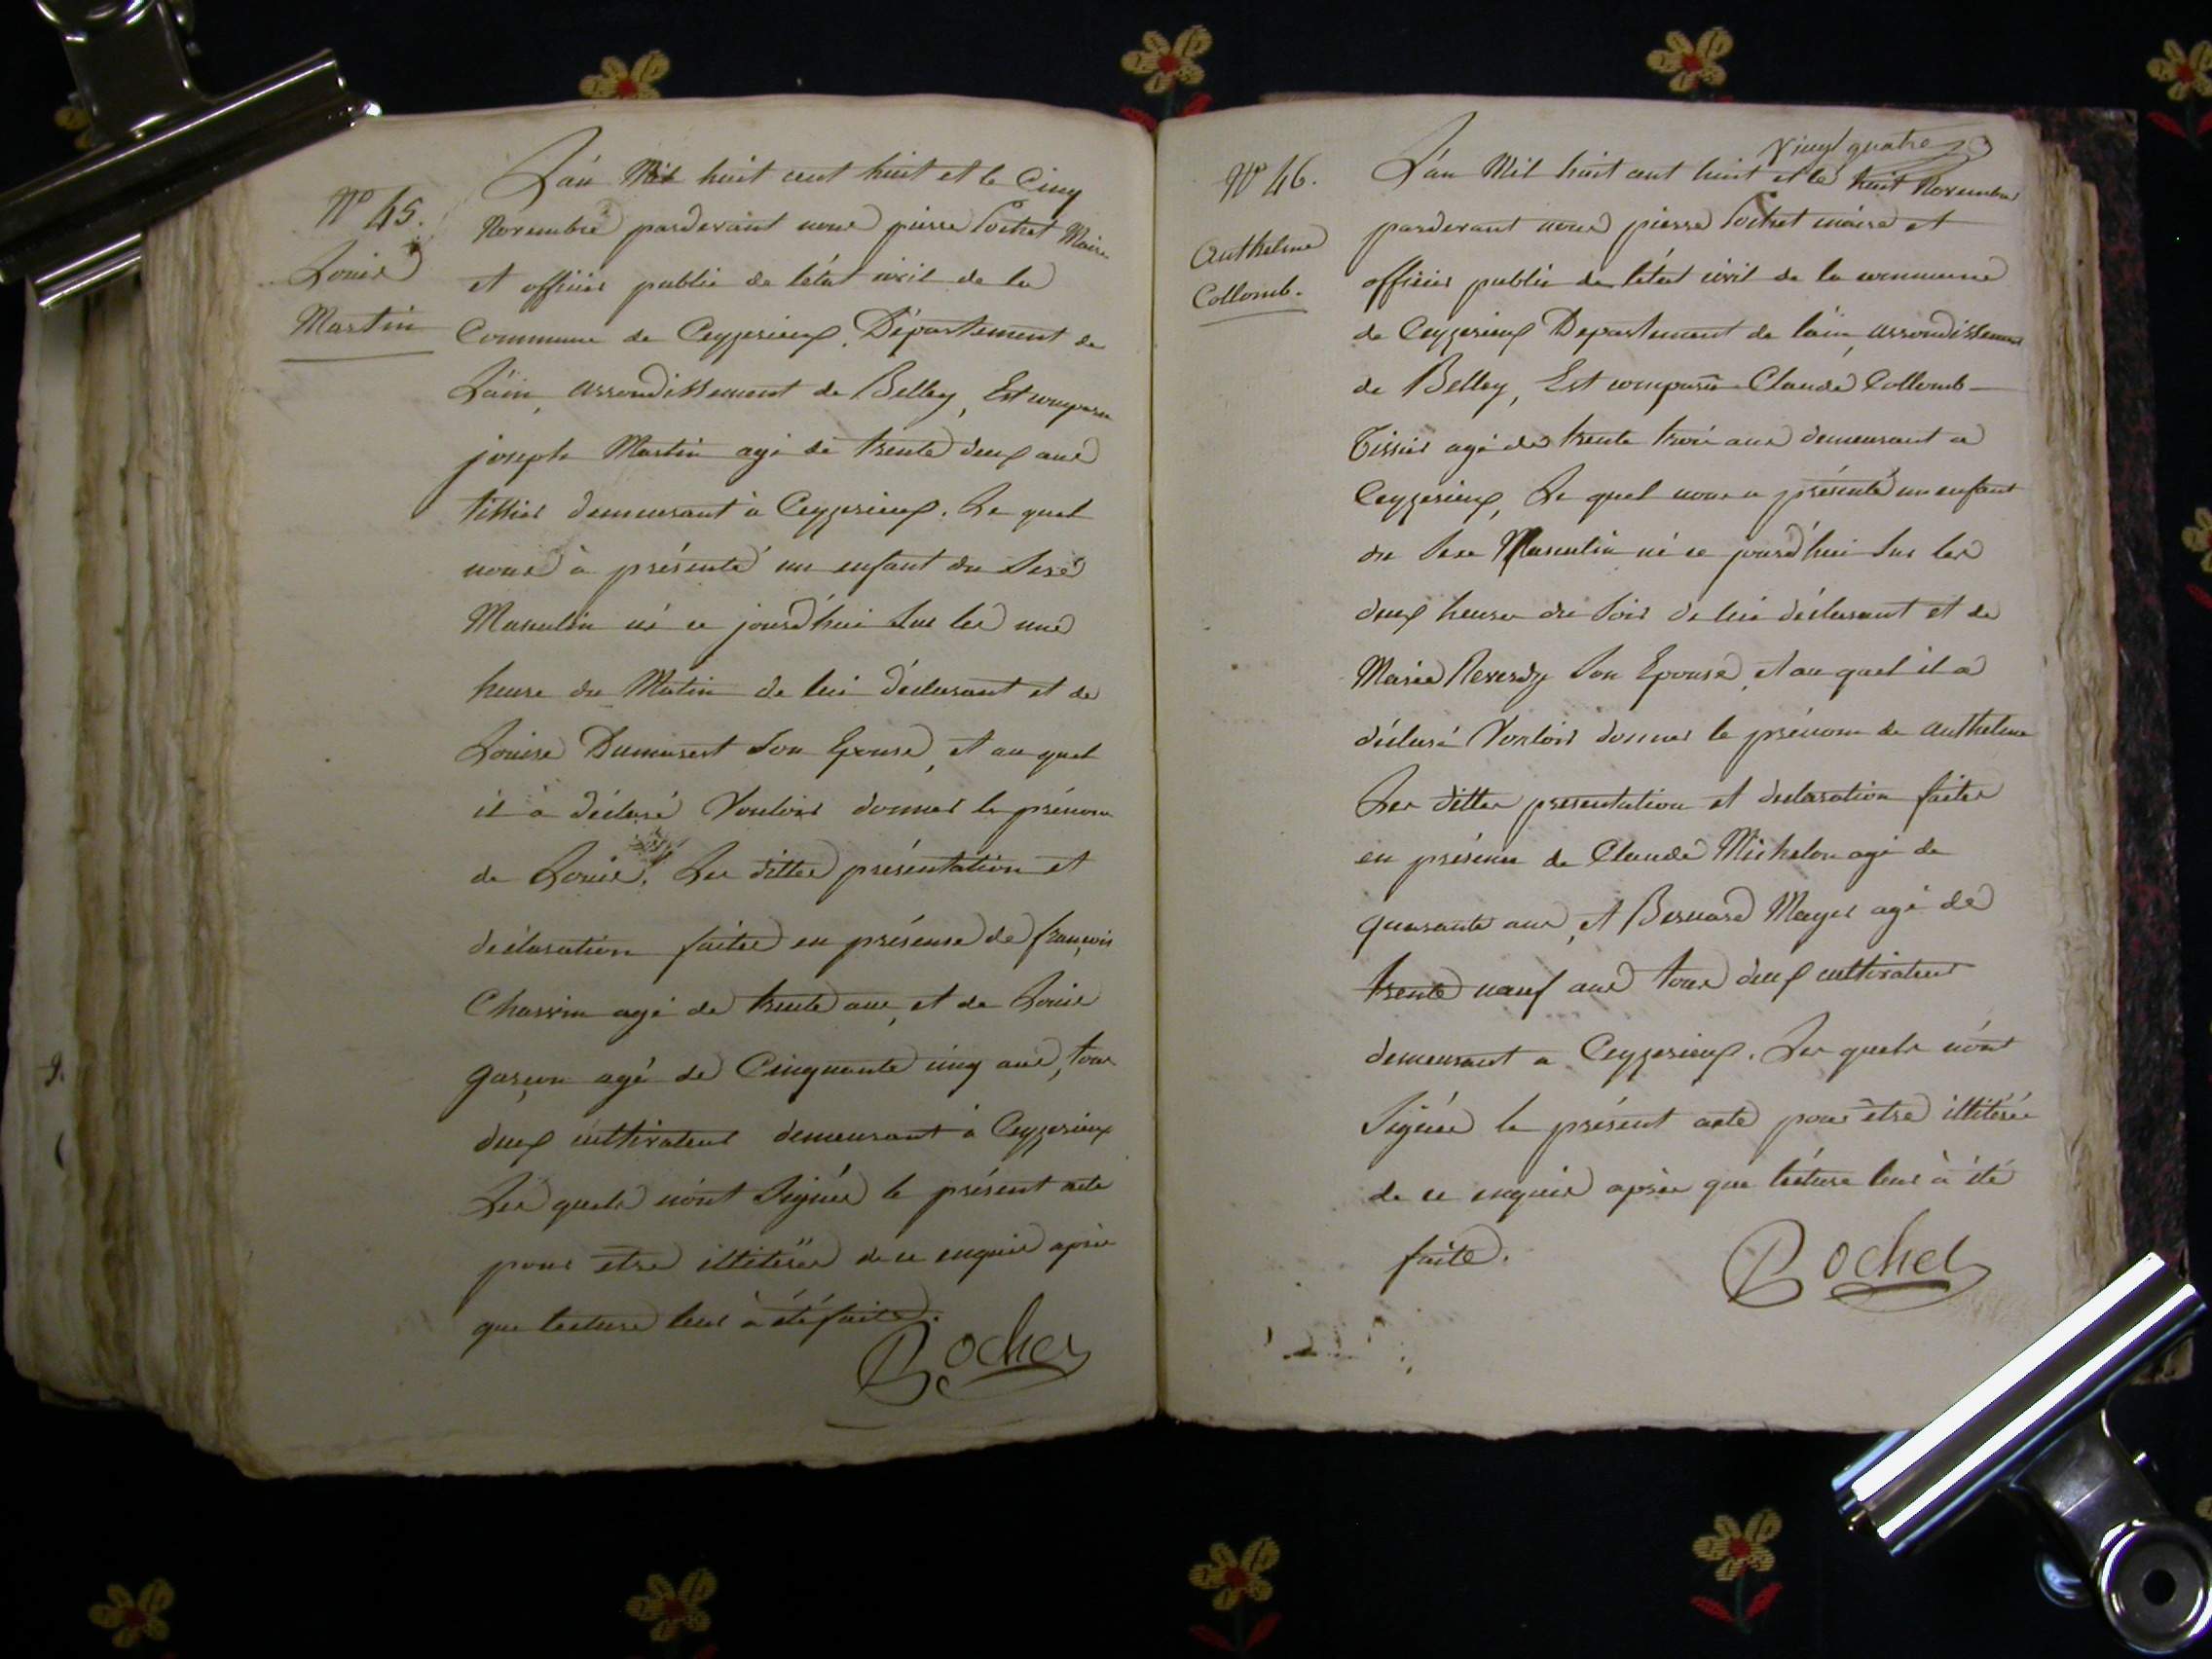 N° 45.
Louis
Martin
L'án Mil huit cent huit et le Cinq
Novembre pardevant nous pierre Pochet Maire
et officier public de l'état civil de la
Commune de Ceyzerieux, Département de
L'ain, arrondissement de Belley, Est comparu
joseph Martin agé de trente deux ans
tissier demeurant à Ceyzerieux. Le quel
nous à présenté un enfant du Sexe
Masculin né ce jourd'hui Sur les une
heure du Matin de lui déclarant et de
Louise Dumarest Son Epouse, et au quel
il à déclaré Vouloir donner le prénom
de Louis. Les dittes présentation et
déclaration faites en présense de françois
agé de trente ans, et de Louis
garçon agé de Cinquante cinq ans, tous
deux cultivateurs demeurant à Ceyzerieux
Les quels n'ont Signés le présent acte
pour etre illiterés de ce enquis après
que lecture leur à été faite.
Pochet
N° 46.
Anthelme
Collomb.
Vingt quatre
L'án Mil huit cent huit et le huit Novembre
pardevant nous pierre Pochet maire et
officier public de l'état civil de la commune
de Ceyzerieux Departement de l'ain, arrondissement
de Belley, Est comparu Claude Collomb
Tissier agé de trente trois ans demeurant a
Ceyzerieux, Le quel nous a présenté un enfant
du Sexe Masculin né ce jourd'hui Sur les
deux heures du Soir de lui déclarant et de
Marie Reverdy Son Epouse, et au quel il a
déclaré Vouloir donner le prénom de anthelme
Les dittes presentation et declaration faites
en présence de Claude Michelon agé de
quarante ans, et Bernard Mayer agé de
trente neuf ans tous deux cultivateurs
demeurant a Ceyzerieux. Les quels n'ont
Signés le présent acte pour être illitérés
de ce enquis après que lécture leur à été
faite.
Pochet